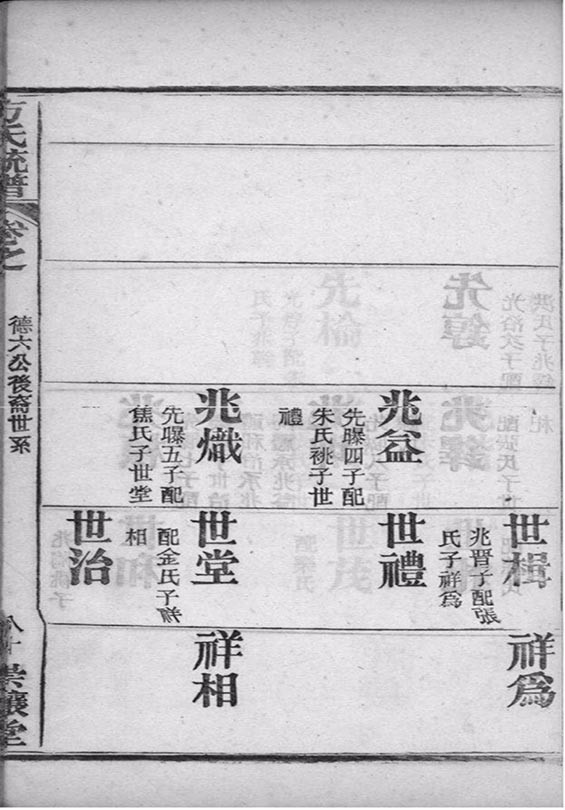 兆益
先曝四子配
朱氏祧子世
禮
兆熾
先曝五子配
焦氏子世堂
世楫
兆晋子配張
氏子祥為
世禮
世堂
配金氏子祥
相
世治
祥為
祥相
方氏統譜
卷之
德六公後裔世系
八十
崇讓堂